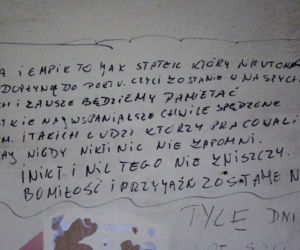 A I EMPIK TO JAK STATEK KTÓRY NIEUTONĄ
DOPŁYNĄ DO PORTU. CZYLI ZOSTANIE W NASZYCH
I ZAWSZE BĘDZIEMY PAMIĘTAĆ
KIE NAJWSPANIALSZE CHWILE SPĘDZONE
M. I TAKICH LUDZI KTÓRZY PRACOWALI
NIGDY NIKT NIC NIE ZAPOMNI.
I NIKT I NIC TEGO NIE ZNISZCZY.
BO MIŁOŚĆ I PRZYJAŹŃ ZOSTANIE N
TYLE DNI